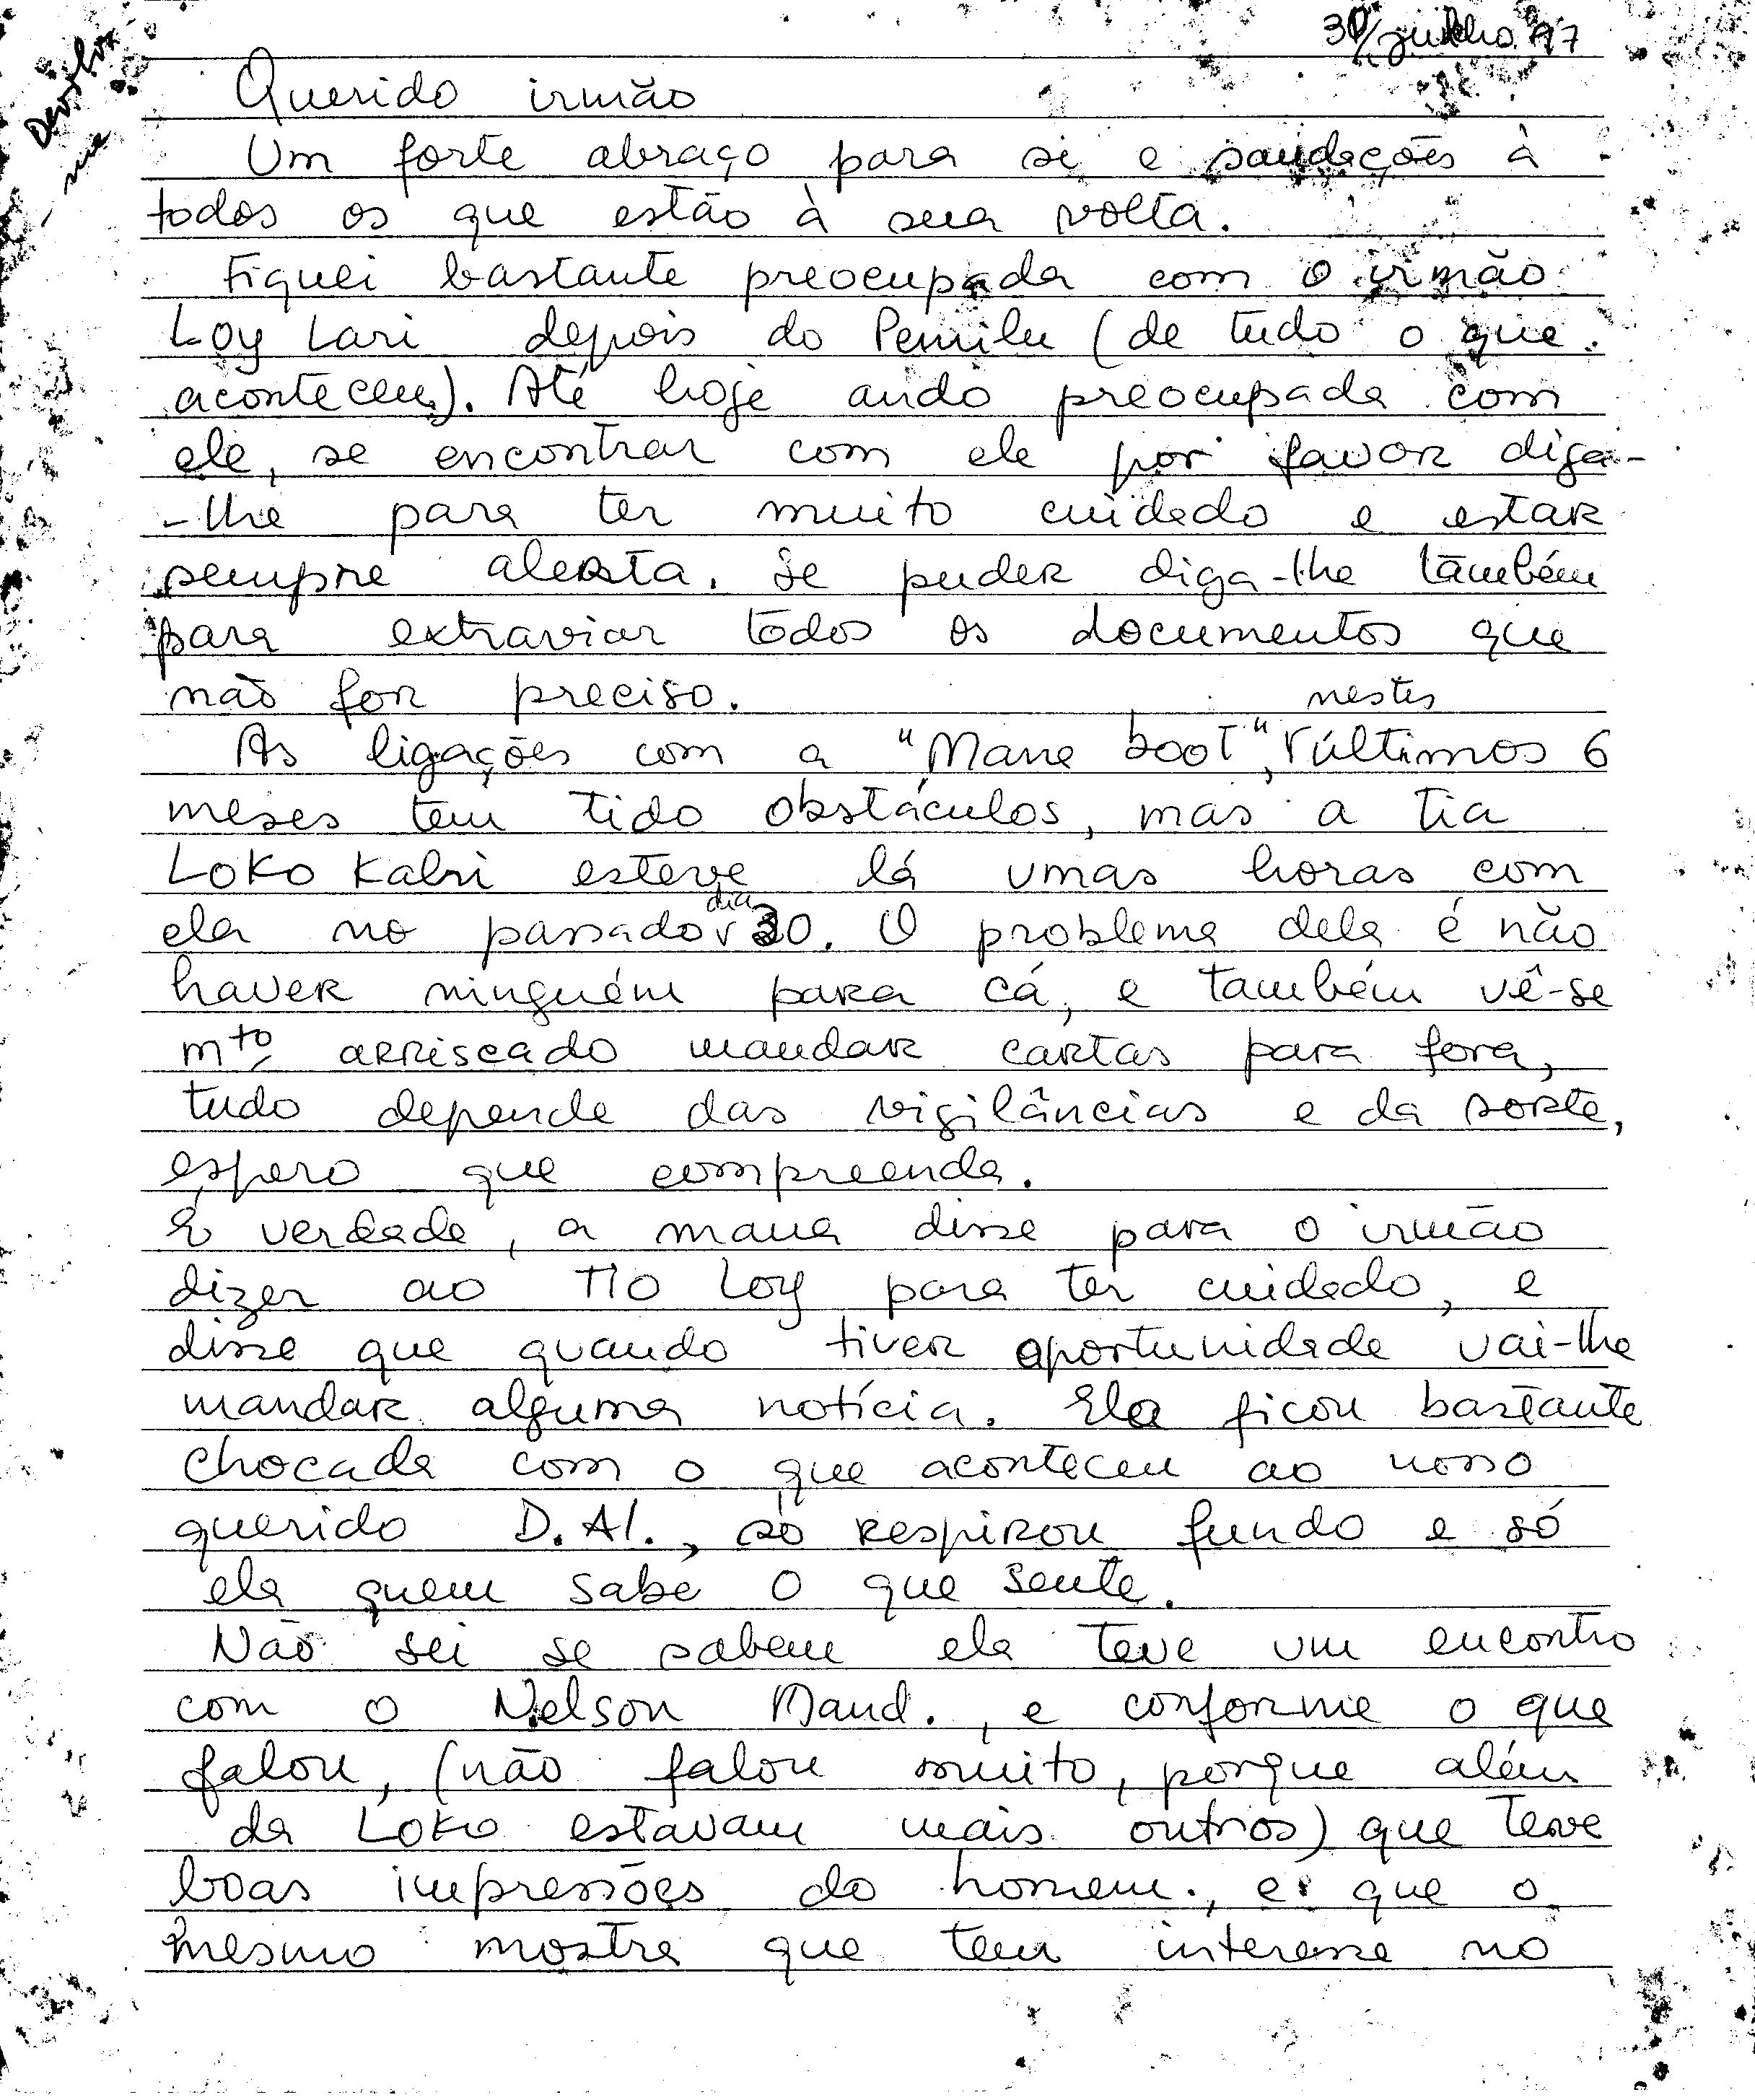 31/julho 97
Querido irmão
Um forte abraço para si e saudações à
todos os que estão à sua volta.
Fiquei bastante preocupada com o irmão
Loy Lari depois do Pemilu (de tudo o que
aconteceu). Até hoje ando preocupada com
ele, se encontrar com ele por favor diga-
-lhe para ter muito cuidado e estar
sempre alerta. Se puder diga-lhe também
para extraviar todos os documentos que
não for preciso.
As ligações com a "Mane boot", nestes últimos 6
meses tem tido obstáculos, mas a tia
Loko Kabri esteve lá umas horas com
ela no passado dia 30. O problema dela é não
haver ninguém para cá, e também vê-se
mto arriscado mandar cartas para fora,
tudo depende das vigilâncias e da sorte,
espero que compreenda.
É verdade, a mana disse para o irmão
dizer ao TIO Loy para ter cuidado, e
disse que quando tiver oportunidade vai-lhe
mandar alguma notícia. Ela ficou bastante
chocada com o que aconteceu ao nosso
querido D.Al., só respirou fundo e só
ela quem sabe o que sente.
Não sei se sabem ela teve um encontro
com o Nelson Mand., e conforme o que
falou, (não falou muito, porque além
da Loko estavam mais outros) que teve
boas impressões do homem., e que o
mesmo mostra que tem interesse no